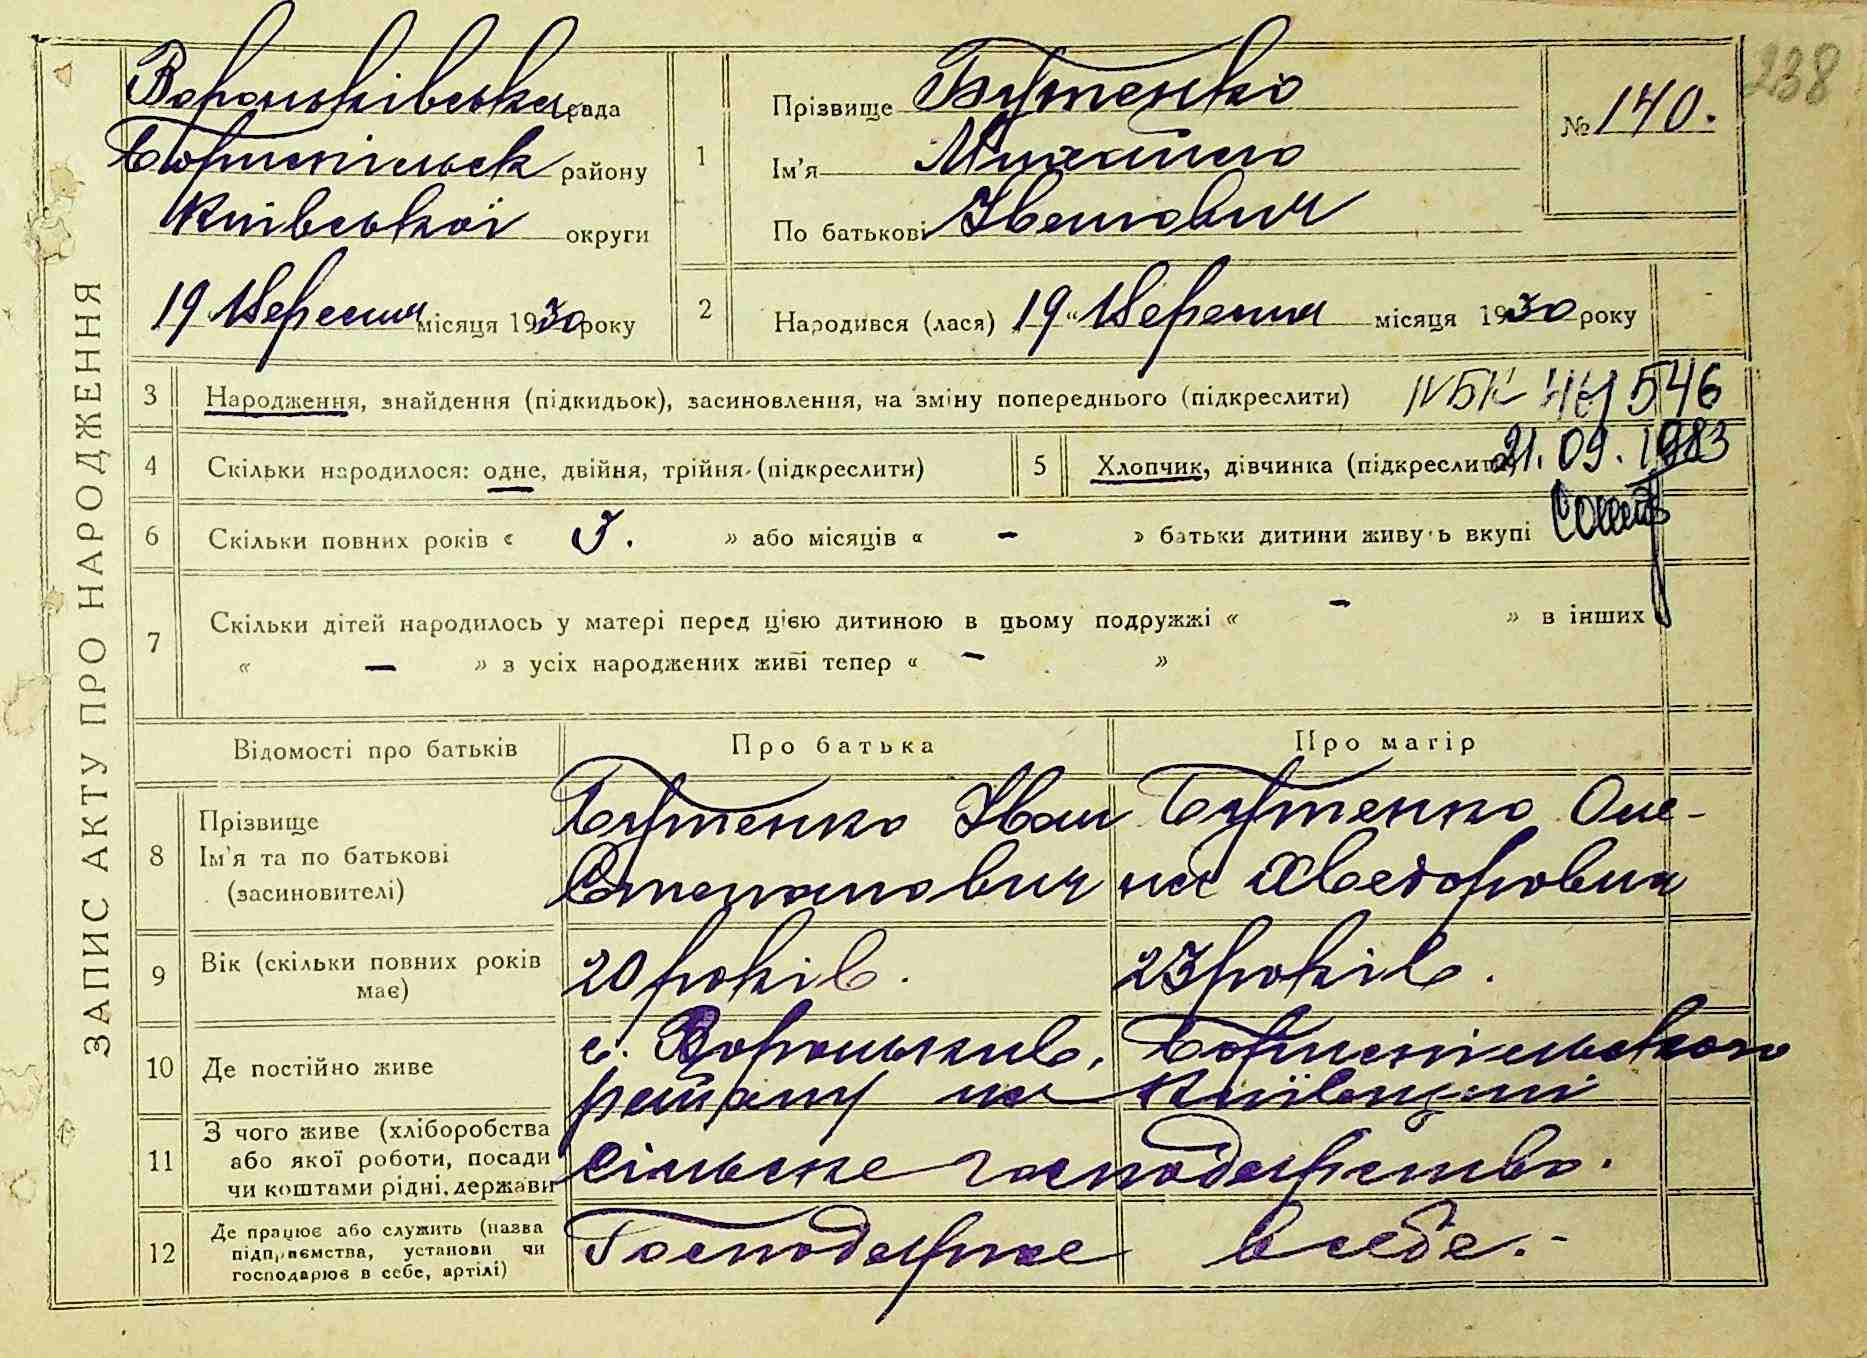 238
Вороньківська рада
Бориспільськ району
Київської округи
19 Вересня місяця 1930 року
1
Прізвище Бутенко
Ім'я Михайло
По батькові Іванович
№ 140.
2
Народився (лася) 19 „ Вересня місяця 1930 року
ЗАПИС АКТУ ПРО НАРОДЖЕННЯ
3 Народження, знайдення (підкидьок), засиновлення, на зміну попереднього (підкреслити)
546
4 Скільки народилося: одне, двійня, трійня (підкреслити)
5 Хлопчик, дівчинка (підкреслити)
21.09.1983
6 Скільки повних років « 3. » або місяців « - » батьки дитини живуть вкупі
7 Скільки дітей народилось у матері перед цією дитиною в цьому подружжі « - » в інших
« - » з усіх народжених живі тепер « - »
Відомості про батьків Про батька Про матір
8
Прізвище
Ім'я та по батькові
(засиновителі)
Бутенко Іван
Степанович
Бутенко Оле-
на Хведоровна
9
Вік (скільки повних років
має)
20 років.
23 років.
10 Де постійно живе
с. Вороньків, Бориспільського
району на Київщині
11
З чого живе (хліборобства
або якої роботи, посади
чи коштами рідні, держави
сільське господарство.
12
Де працює або служить (назва
підприємства, установи чи
господарює в себе, артілі)
Господарює в себе.-